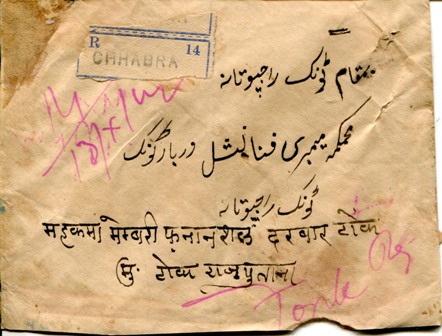 R 14
CHHABRA
بمقام ٹونک راجپوتانہ
محکمہ ممبری فنانشل دربار ٹونک
ٹونک راجپوتانہ
महकमा मेम्बरी फनानशल दरबार टोंक
मु. टोंक राजपुताना
Tonk